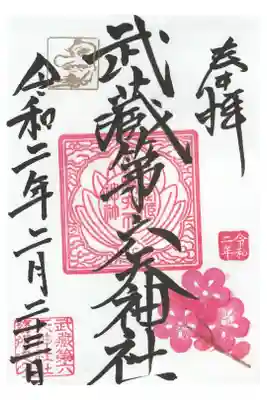 奉拝
武蔵第六天神社
令和二年二月二十三日
令和
二年
武蔵第六
天神社